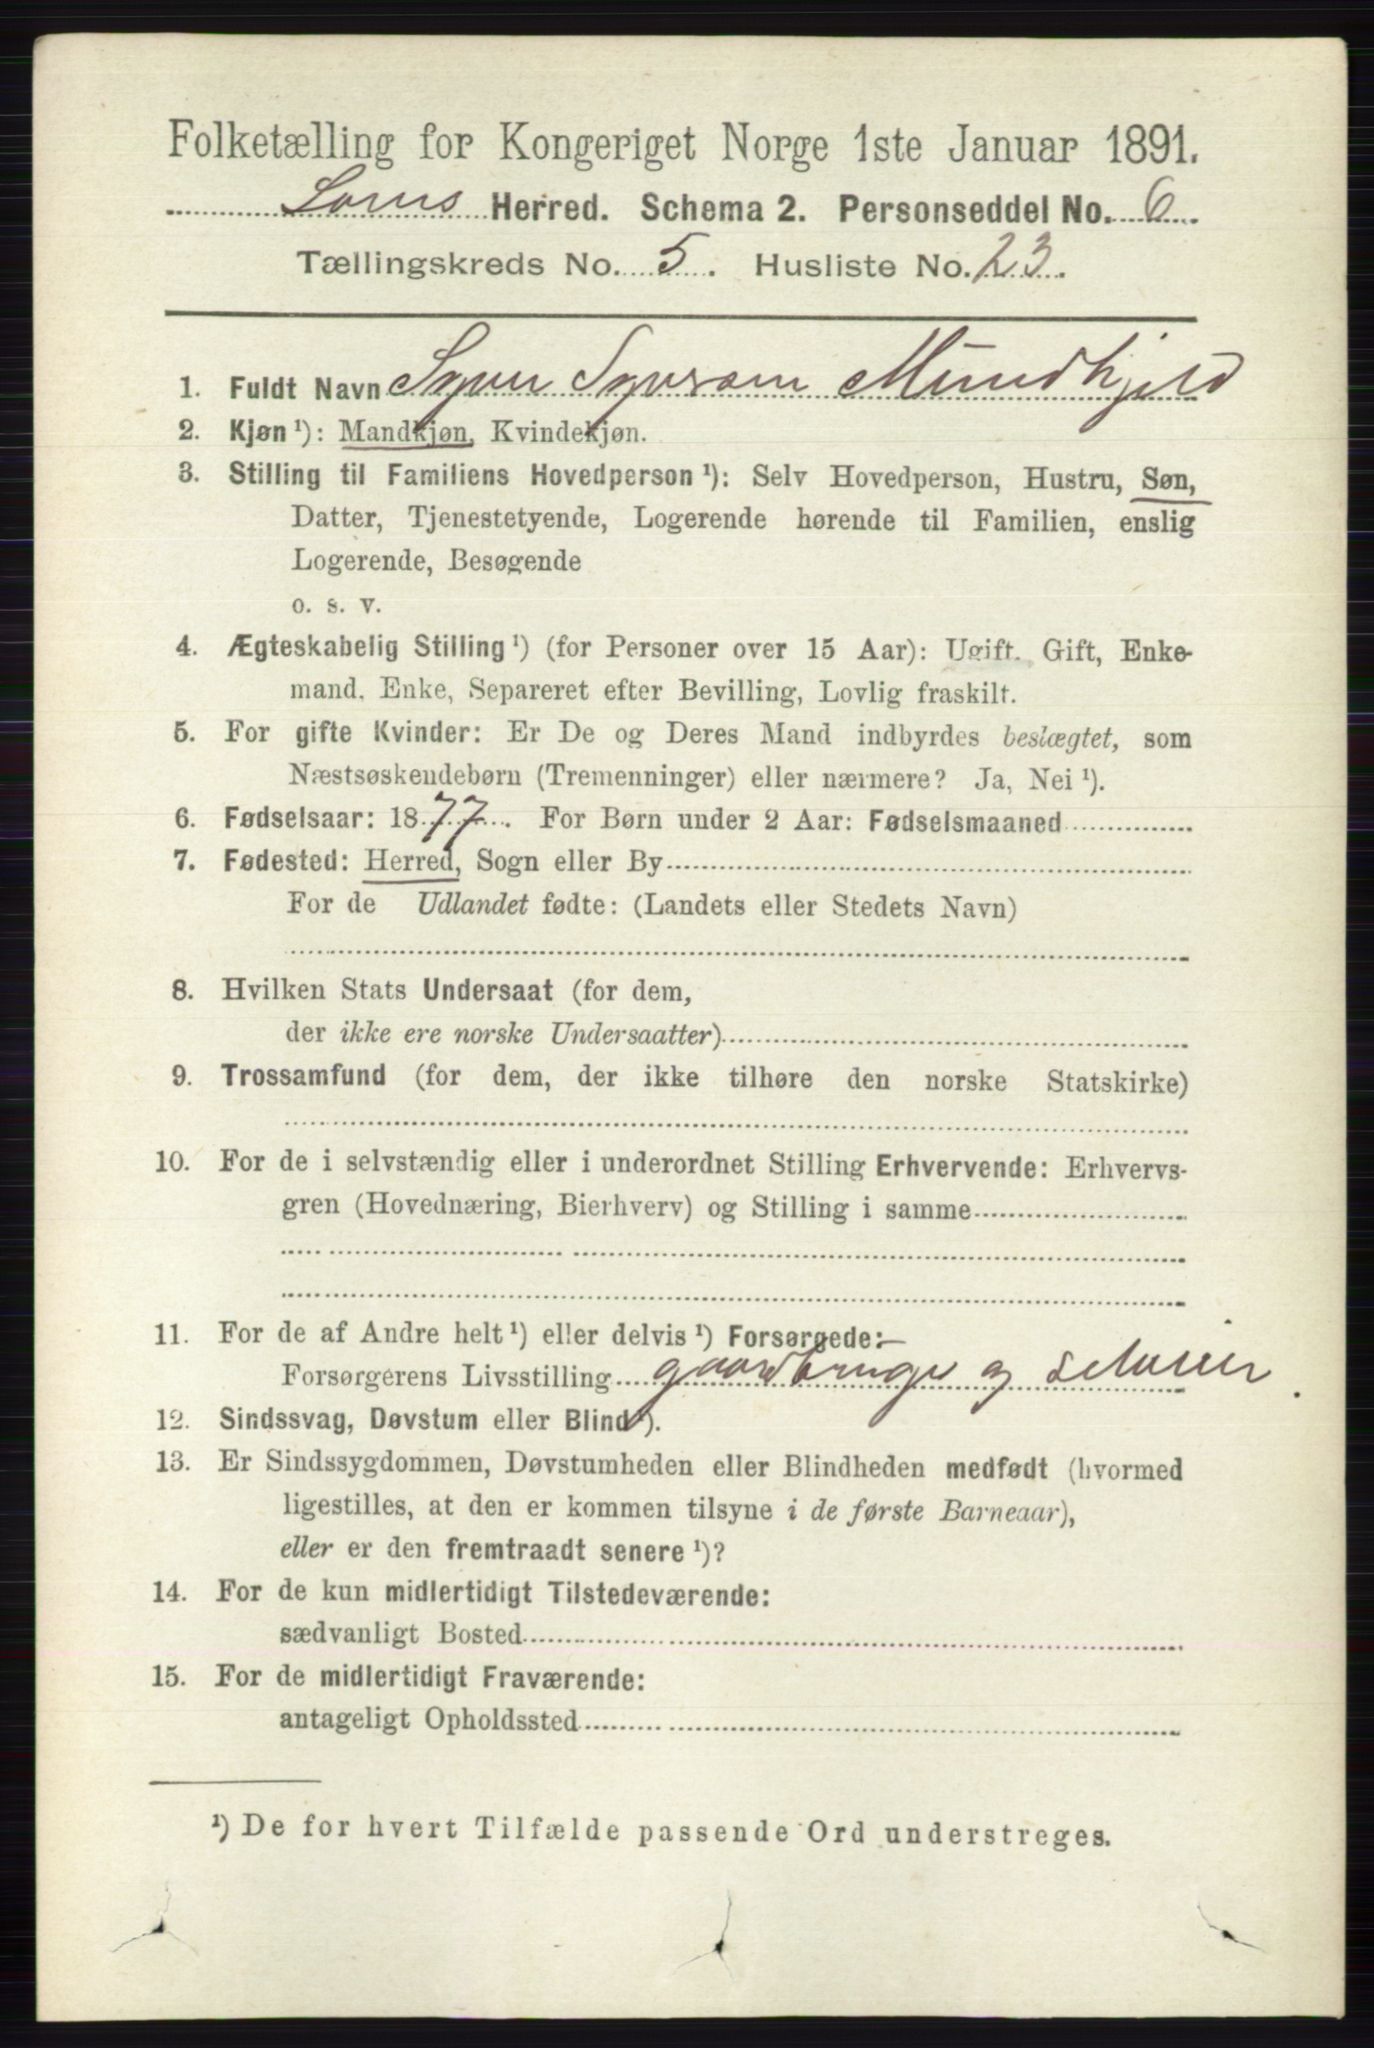 Folketælling for Kongeriget Norge 1ste Januar 1891.
Loms Herred. Schema 2. Personseddel No. 6.
Tællingskreds No. 5. Husliste No. 23.
1. Fuldt Navn Syver Syversen Mundhjeld
2. Kjøn ¹): Mandkjøn, Kvindekjøn.
3. Stilling til Familiens Hovedperson ¹): Selv Hovedperson, Hustru, Søn,
Datter, Tjenestetyende, Logerende hørende til Familien, enslig
Logerende, Besøgende
o. s. v.
4. Ægteskabelig Stilling ¹) (for Personer over 15 Aar): Ugift. Gift, Enke-
mand, Enke, Separeret efter Bevilling, Lovlig fraskilt.
5. For gifte Kvinder: Er De og Deres Mand indbyrdes beslægtet, som
Næstsøskendebørn (Tremenninger) eller nærmere? Ja, Nei ¹).
6. Fødselsaar: 1877. For Børn under 2 Aar: Fødselsmaaned
7. Fødested: Herred, Sogn eller By
For de Udlandet fødte: (Landets eller Stedets Navn)
8. Hvilken Stats Undersaat (for dem,
der ikke ere norske Undersaatter)
9. Trossamfund (for dem, der ikke tilhøre den norske Statskirke)
10. For de i selvstændig eller i underordnet Stilling Erhvervende: Erhvervs-
gren (Hovednæring, Bierhverv) og Stilling i samme
11. For de af Andre helt ¹) eller delvis ¹) Forsørgede:
Forsørgerens Livsstilling gaardbruger og selveier.
12. Sindssvag, Døvstum eller Blind ¹).
13. Er Sindssygdommen, Døvstumheden eller Blindheden medfødt (hvormed
ligestilles, at den er kommen tilsyne i de første Barneaar),
eller er den fremtraadt senere ¹)?
14. For de kun midlertidigt Tilstedeværende:
sædvanligt Bosted
15. For de midlertidigt Fraværende:
antageligt Opholdssted
¹) De for hvert Tilfælde passende Ord understreges.